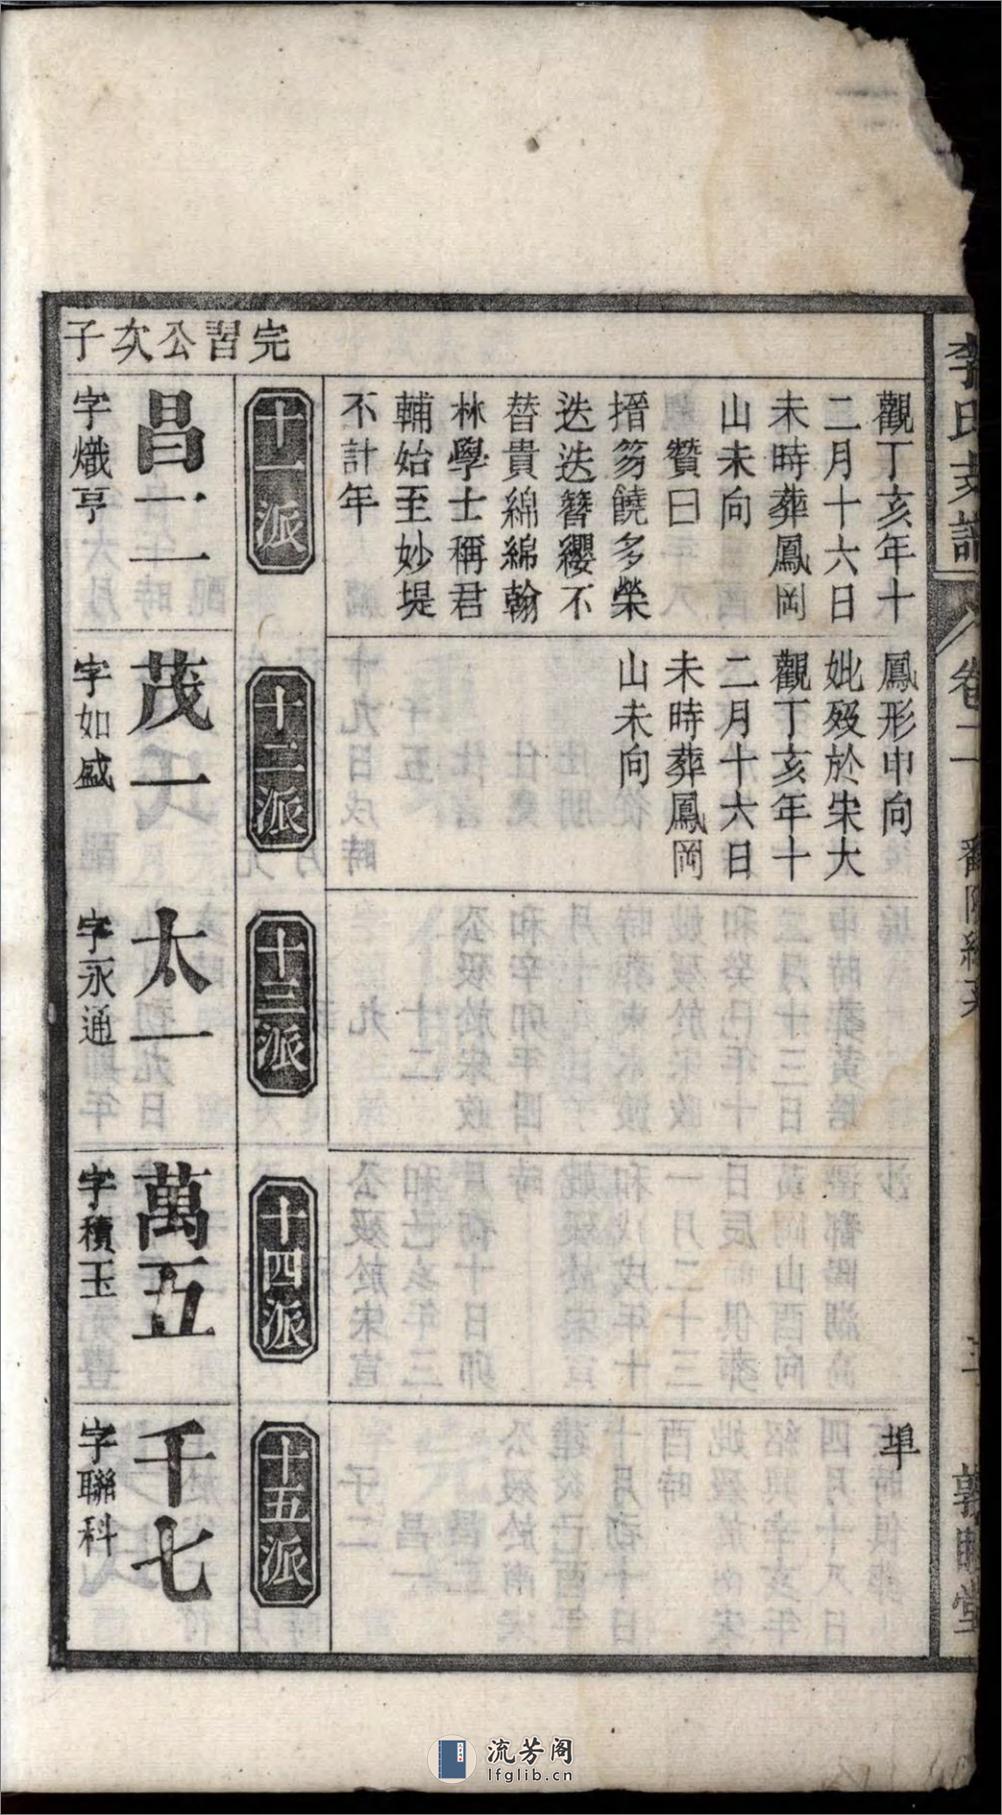 李氏支譜
卷二
三
敦睦堂
觀丁亥年十
二月十六日
未時葬鳳岡
山未向
贊曰
搢笏饒多榮
迭迭簪纓不
替貴綿綿翰
林學士稱君
輔始至妙堤
不計年
鳳形申向
妣歿於宋大
觀丁亥年十
二月十六日
未時葬鳳岡
山未向
埠
十一派
十二派
十三派
十四派
十五派
完習公次子
昌二
字熾亨
茂一
字如盛
太一
字永通
萬五
字積玉
千七
字聯科
流芳阁
lfglib.cn